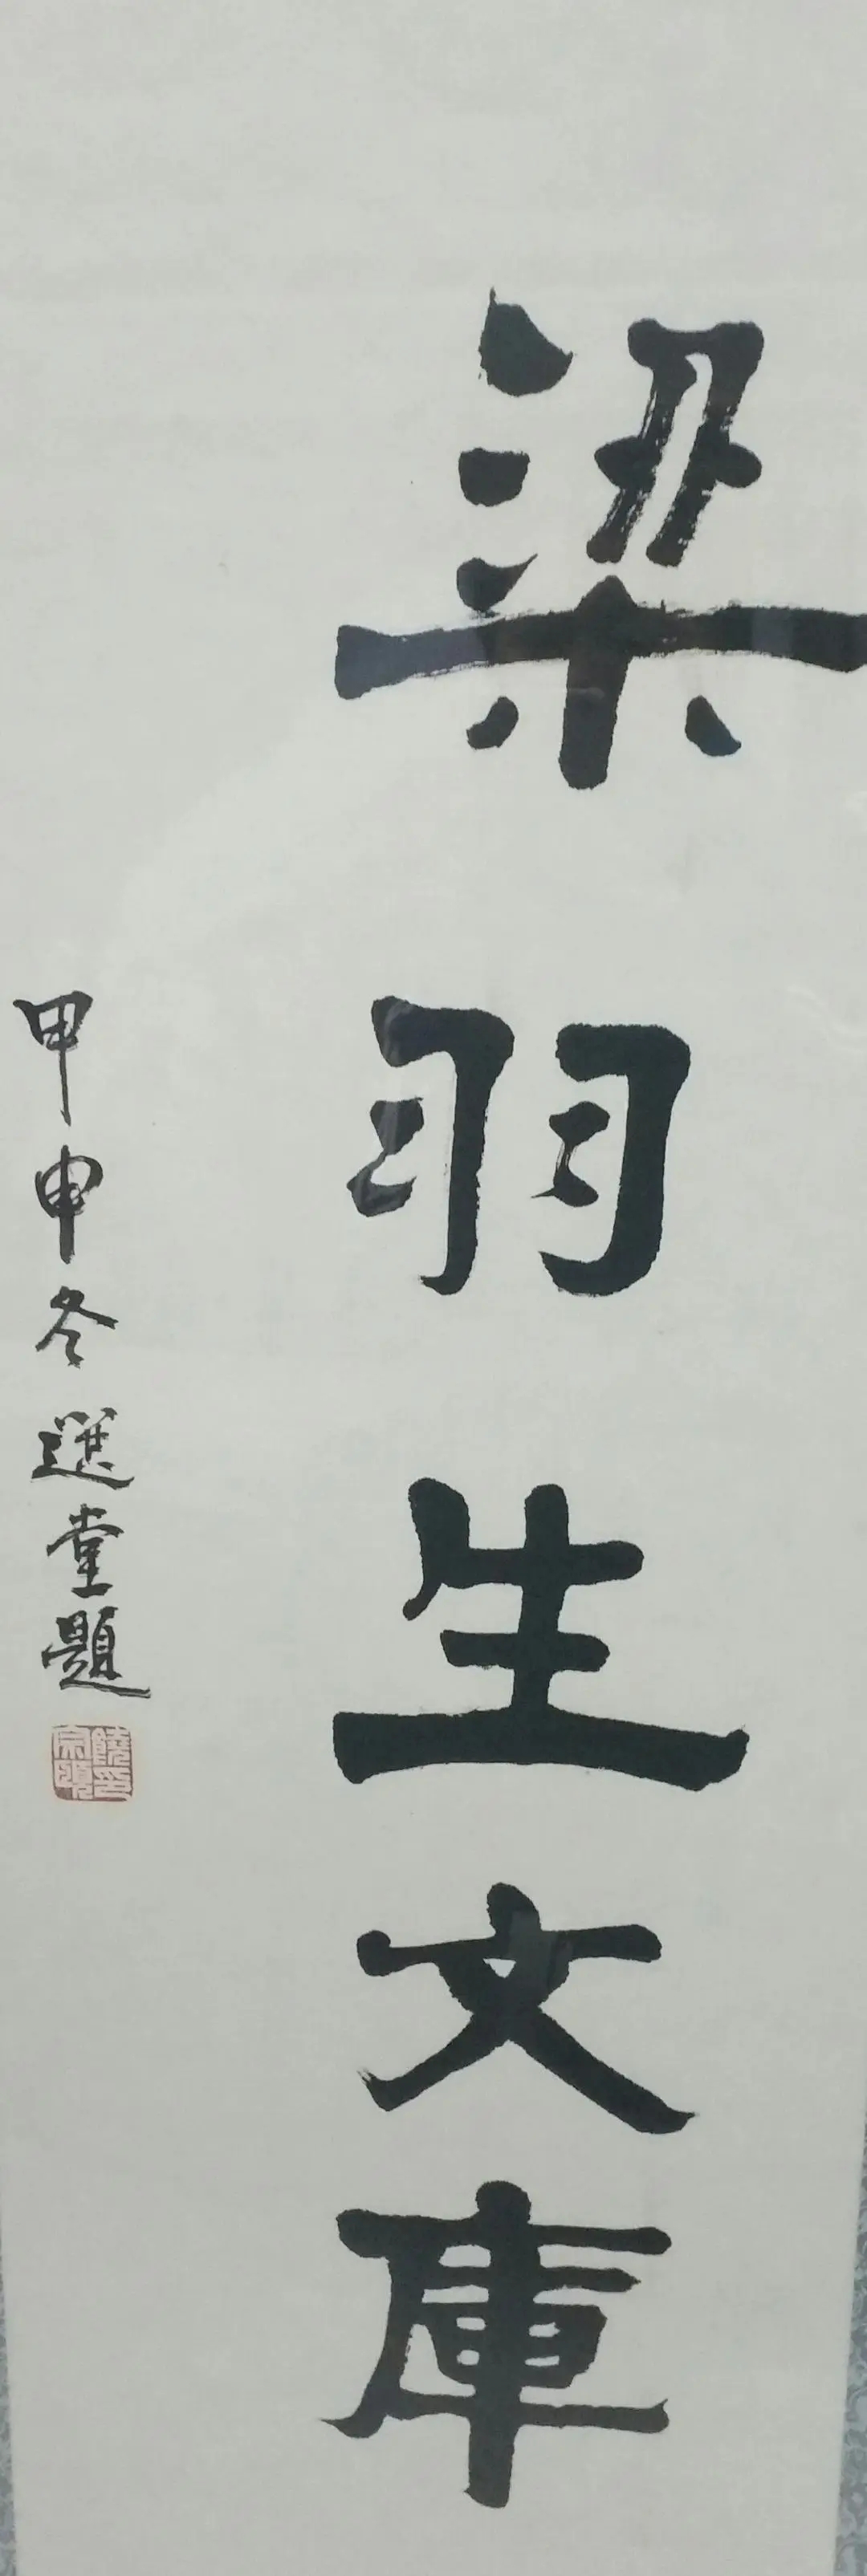 梁羽生文庫
甲申冬選堂題
饒宗頤印